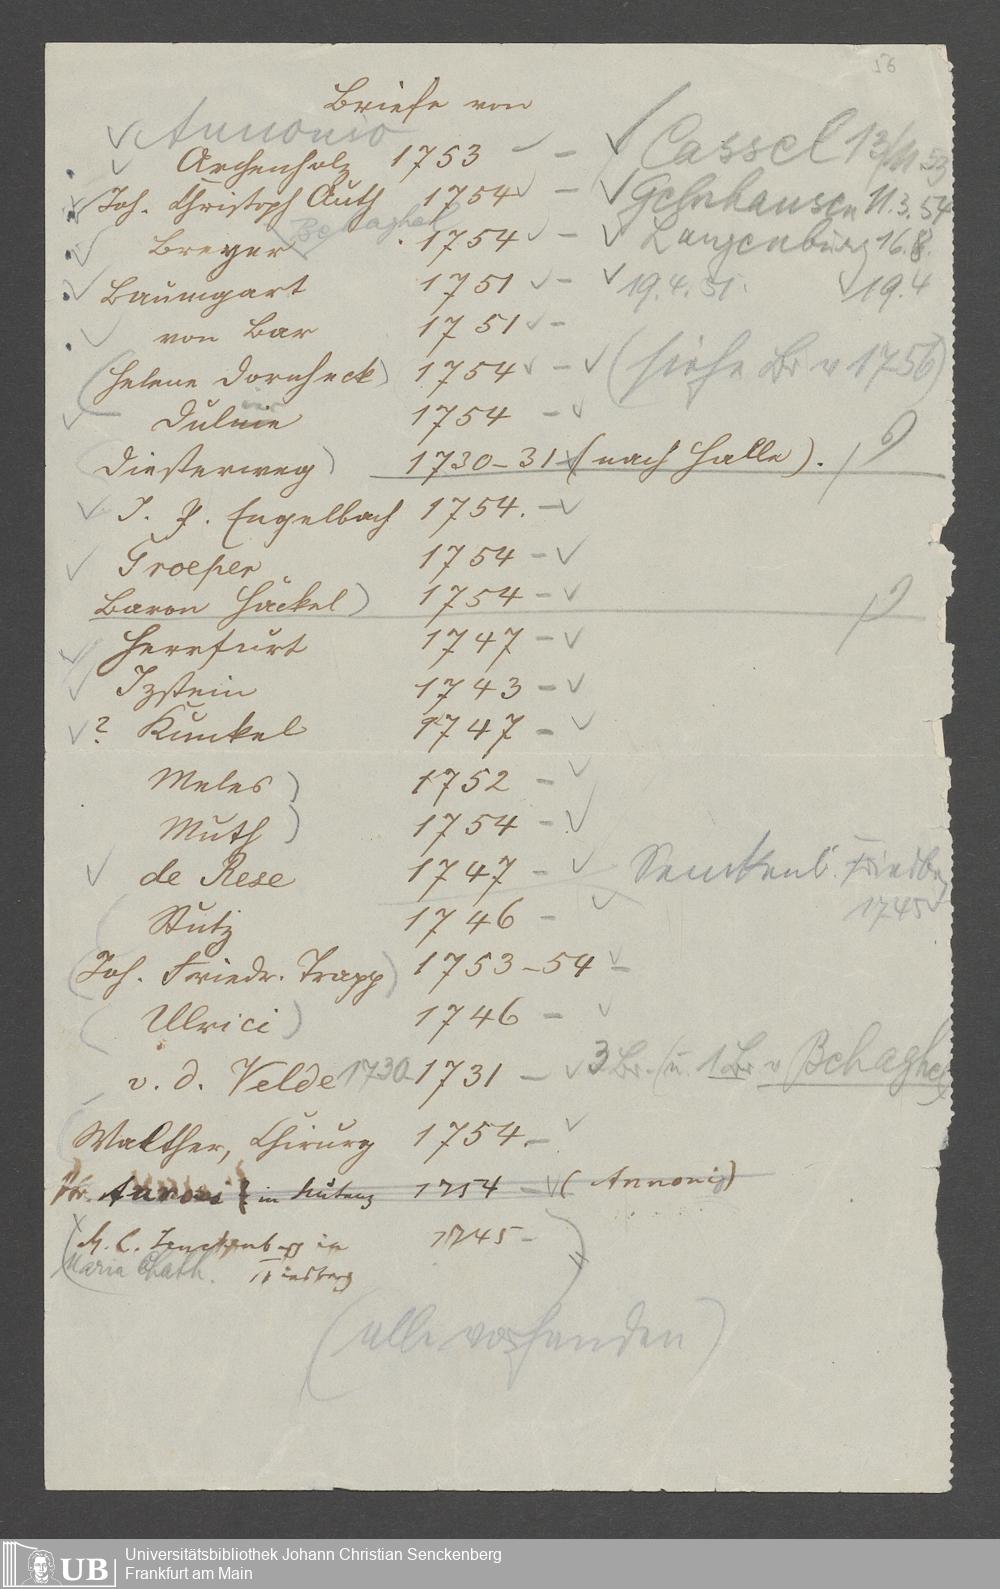 56
Briefe von
Annonio
Archenholz 1753 – Cassel 13/11 53
Joh. Christoph Auth 1754 – Gelnhausen 11.3.54
Behaghel
Breyer 1754 – Langenburg 16.8.
Baumgart 1751 – 19.4.51. 19.4
von Bar 1751 –
(Helene Dornheck) 1754 – (siehe Br v 1756)
Dulnie 1754 –
Diesterweg) 1730–31 (nach Halle). ?
J. P. Engelbach 1754. –
Groeser 1754 –
Baron Häckel) 1754 – ?
Herrfurt 1747 –
Izstein 1743 –
? Kunkel 1747 –
Meles) 1752 –
Muth) 1754 –
de Rese 1747 – Senckenb. Friedberg
1745
Stutz 1746 –
(Joh. Friedr. Trapp) 1753–54 –
(Ulrici) 1746 –
v. d. Velde 1730 1731 – 3 Br. (u. 1 Br v Behaghel)
Walther, Chirurg 1754. –
Annoni in Mutenz 1754 – (Annoni)
(M. C. Senckenberg in 1745 –
Maria Chath. Friedberg
(alle vorhanden)
UB
Universitätsbibliothek Johann Christian Senckenberg
Frankfurt am Main